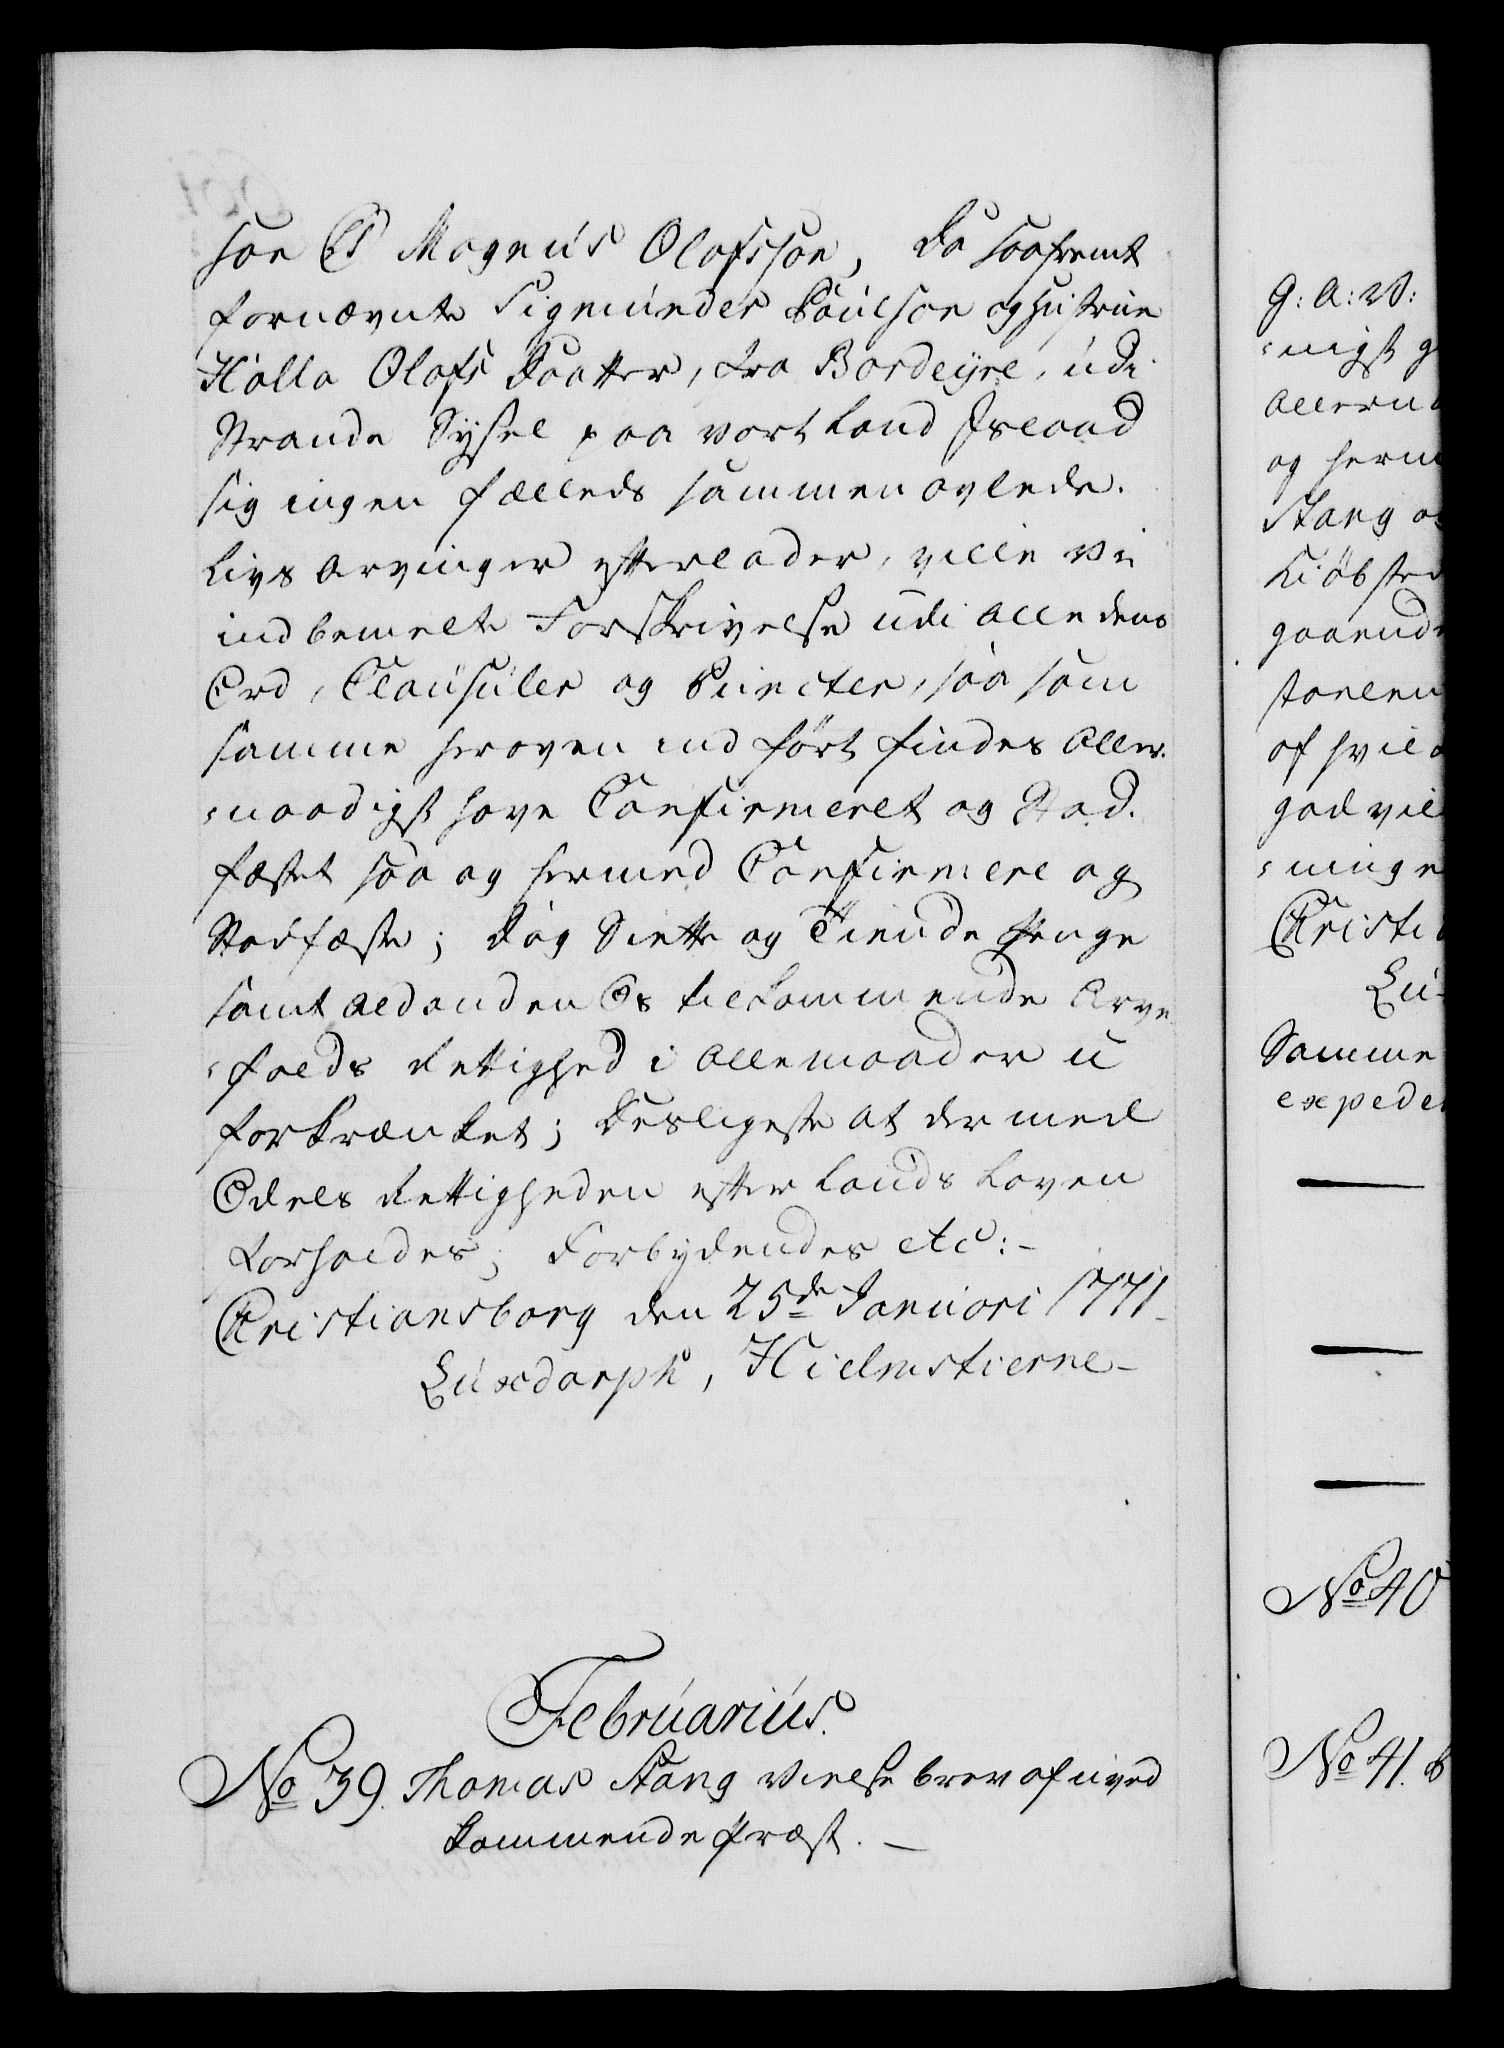 son Magnus Olafsson, da saafremt
fornævnte Sigmunder Poulson og Hustrue
Halla Olafs Daatter, fra Bordeyre, udi
Strande Sysel paa vort Land Island
sig ingen fælleds sammenavlede
Livs Arvinger efterlader, ville Vi
indbemelte Forskrivelse udi alle dens
Ord, Clausuler og Puncter, saa som
samme heroven indført findes Aller-
=naadigst have Confirmeret og Stad-
fæstet saa og hermed Confirmere og
Stadfæste; dog Siette og Tiende Penge
samt ald anden Os tilkommende Arve
=falds Rettighed i alle maader u
forkrænket; Desligeste at der med
Odels Rettigheden efter Lands Loven
forholdes; Forbydendes etc:-
Christiansborg den 25de Januari 1771-
Luxdorph, Hielmstierne-
Februarius.
No 39. Thomas Stang Vielse brev af uved
kommende Præst. -
G: A: V:
=nigst g
Allerna
og herm
Stang o
Kiøbsted
gaaende
stolen
of hvil
godvil
=ninge
Christi
Lu
Samme
expeder
No 40
No 41. B